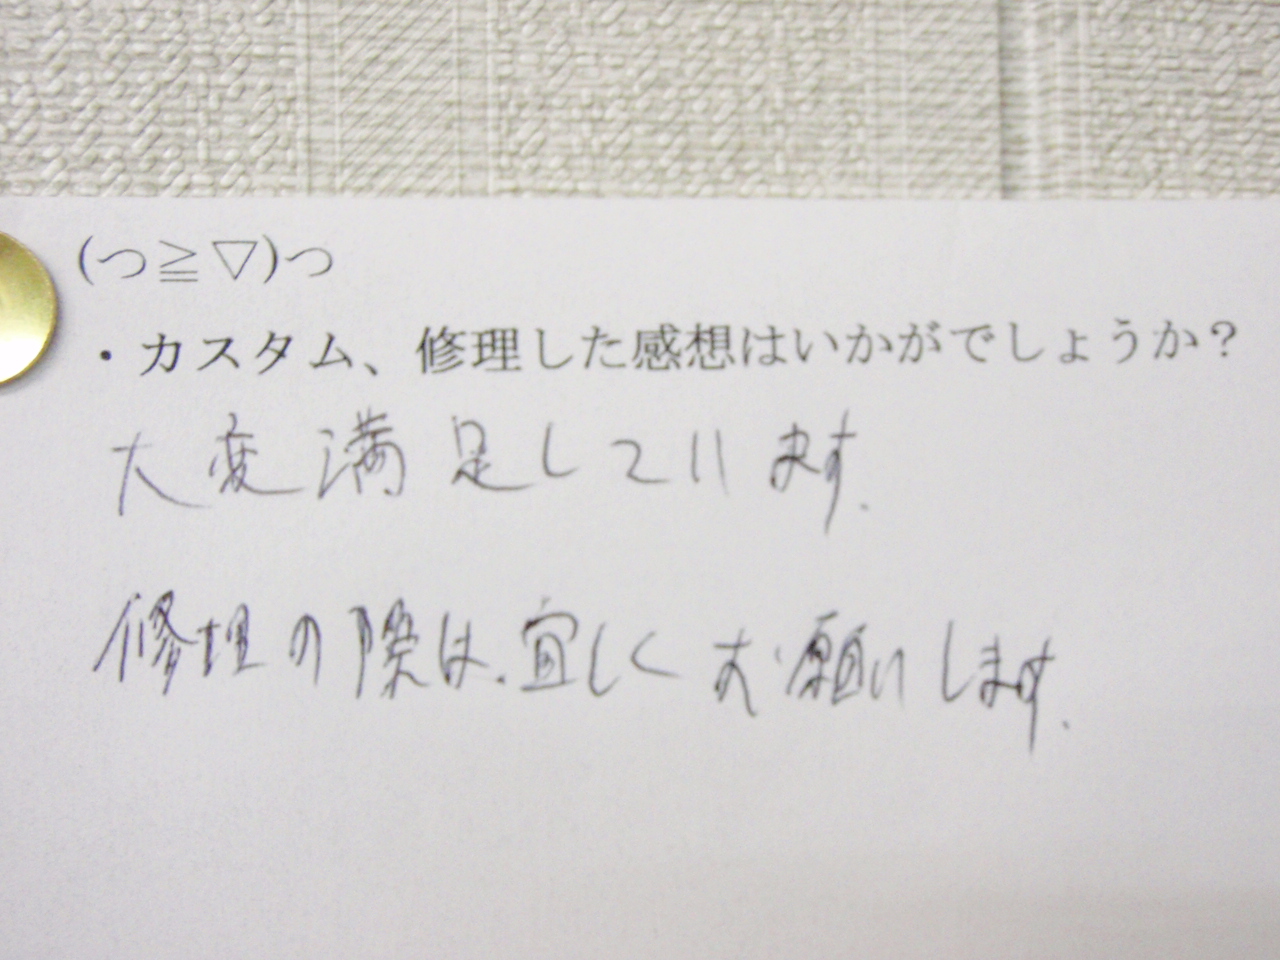 (つ≧▽)つ
・カスタム、修理した感想はいかがでしょうか?
大変満足しています.
修理の際は、宜しくお願いします.